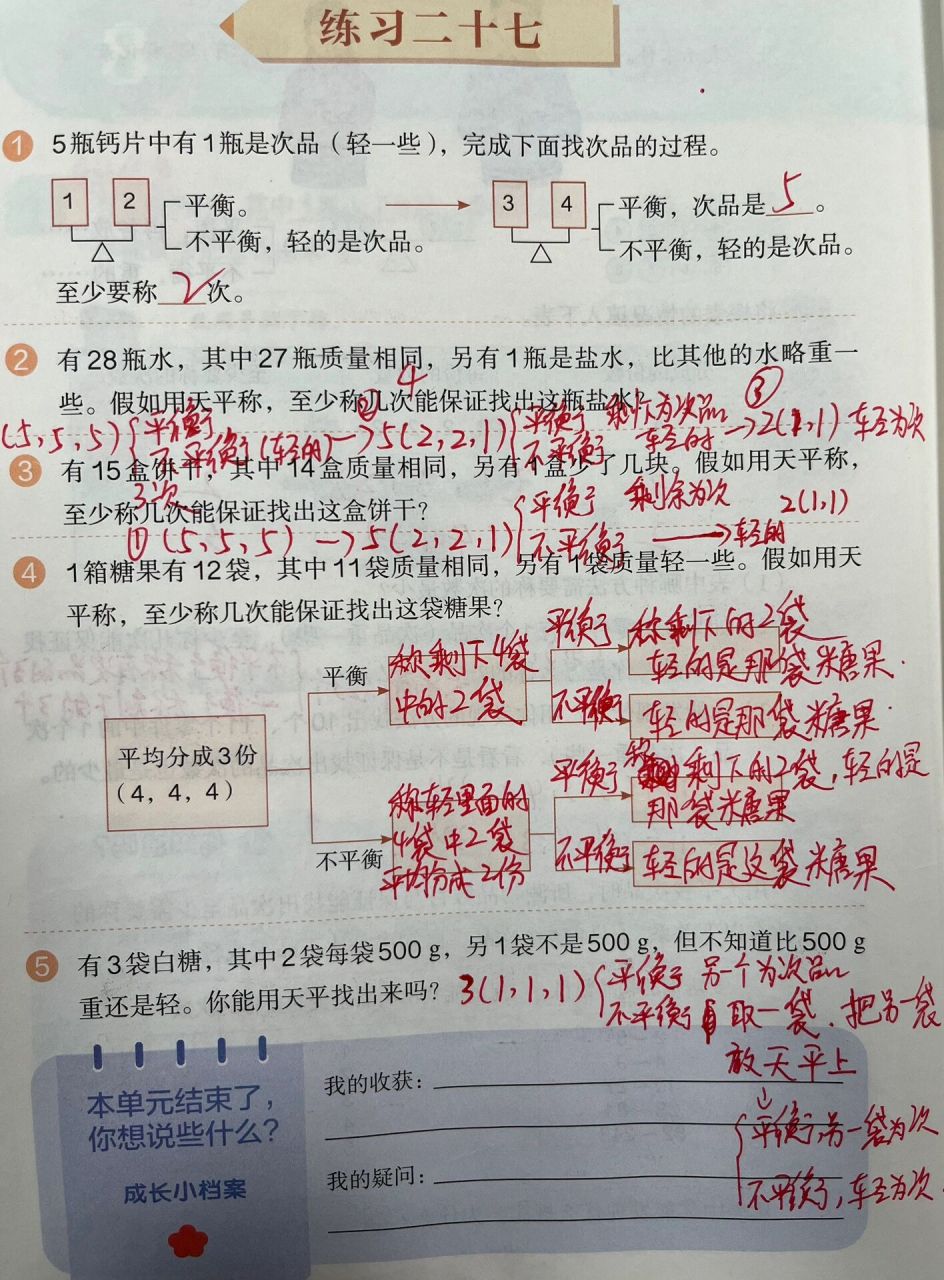 练习二十七
1 5瓶钙片中有1瓶是次品(轻一些),完成下面找次品的过程。
1 2 平衡。 3 4 平衡,次品是 5 。
不平衡,轻的是次品。 不平衡,轻的是次品。
至少要称 2 次。
2 有28瓶水,其中27瓶质量相同,另有1瓶是盐水,比其他的水略重一
4
些。假如用天平称,至少称几次能保证找出这瓶盐水?
② ③
(5,5,5) 平衡 →5(2,2,1) 平衡 剩下为次品
不平衡(轻的) 不平衡 轻的 →2(1,1) 轻为次
3 有15盒饼干,其中14盒质量相同,另有1盒少了几块。假如用天平称,
3次
至少称几次能保证找出这盒饼干?
平衡 剩余为次 2(1,1)
①(5,5,5)→5(2,2,1) 不平衡 →轻的
4 1箱糖果有12袋,其中11袋质量相同,另有1袋质量轻一些。假如用天
平称,至少称几次能保证找出这袋糖果?
平均分成3份
(4,4,4)
平衡
称剩下4袋
中的2袋
平衡
称剩下的2袋
轻的是那袋糖果.
不平衡
轻的是那袋糖果.
不平衡
称轻里面的
4袋中2袋
平均分成2份
平衡
称剩下的2袋,轻的是
那袋糖果
不平衡
轻的是这袋糖果
5 有3袋白糖,其中2袋每袋500 g,另1袋不是500 g,但不知道比500 g
重还是轻。你能用天平找出来吗?
3(1,1,1) 平衡 另一个为次品
不平衡 取一袋.把另一袋
放天平上
↓
平衡,另一袋为次
不平衡,轻为次.
本单元结束了,
你想说些什么?
成长小档案
我的收获:
我的疑问: